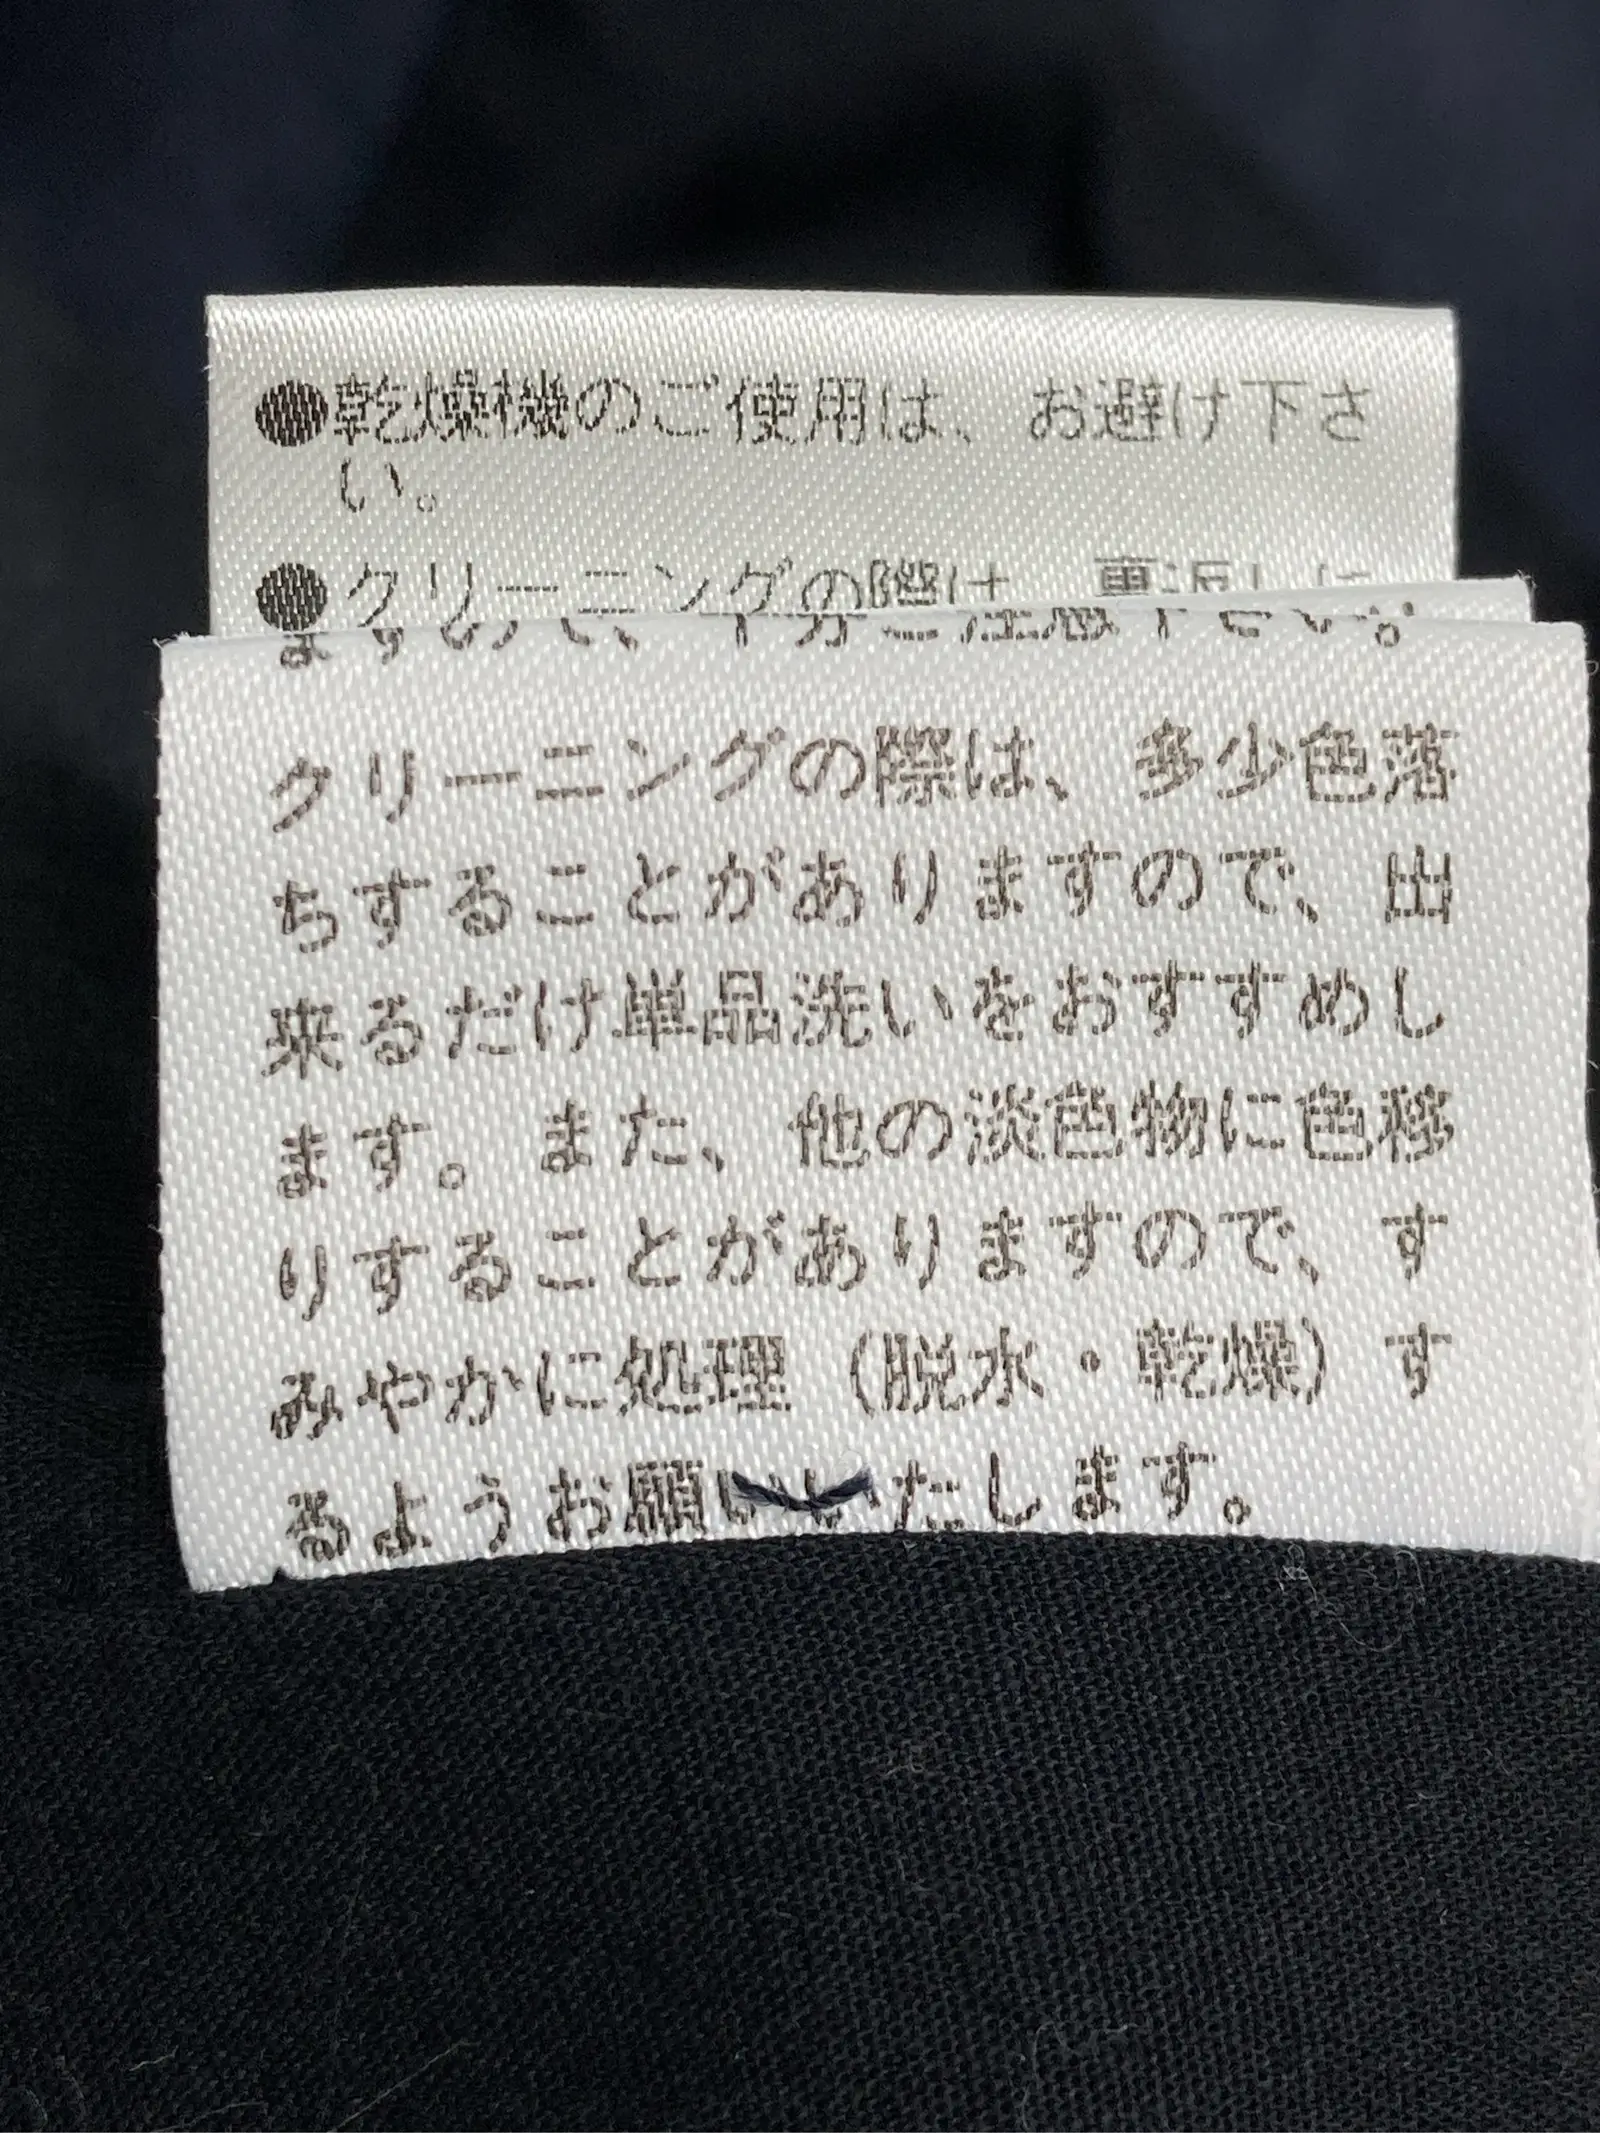 ●乾燥機のご使用は、お避け下さ
い。
●クリーニングの際は、裏返しに
ますので、十分ご注意下さい。
クリーニングの際は、多少色落
ちすることがありますので、出
来るだけ単品洗いをおすすめし
ます。また、他の淡色物に色移
りすることがありますので、す
みやかに処理（脱水・乾燥）す
るようお願いいたします。